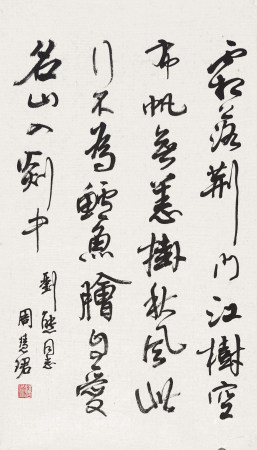 霜落荆门江樹空
布帆無恙掛秋風此
行不為鱸魚膾自愛
名山入剡中
劉同志
周慧珺